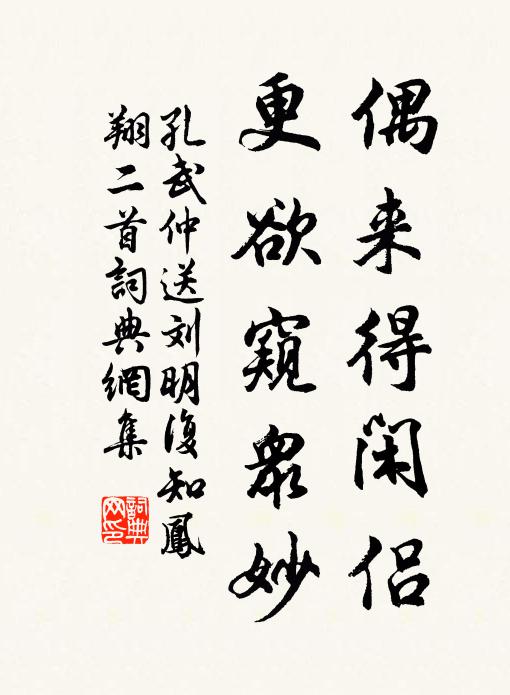 偶来得闲侣
更欲窥眾妙
孔武仲送刘明復知鳳
翔二首詞典網集
詞典
网印